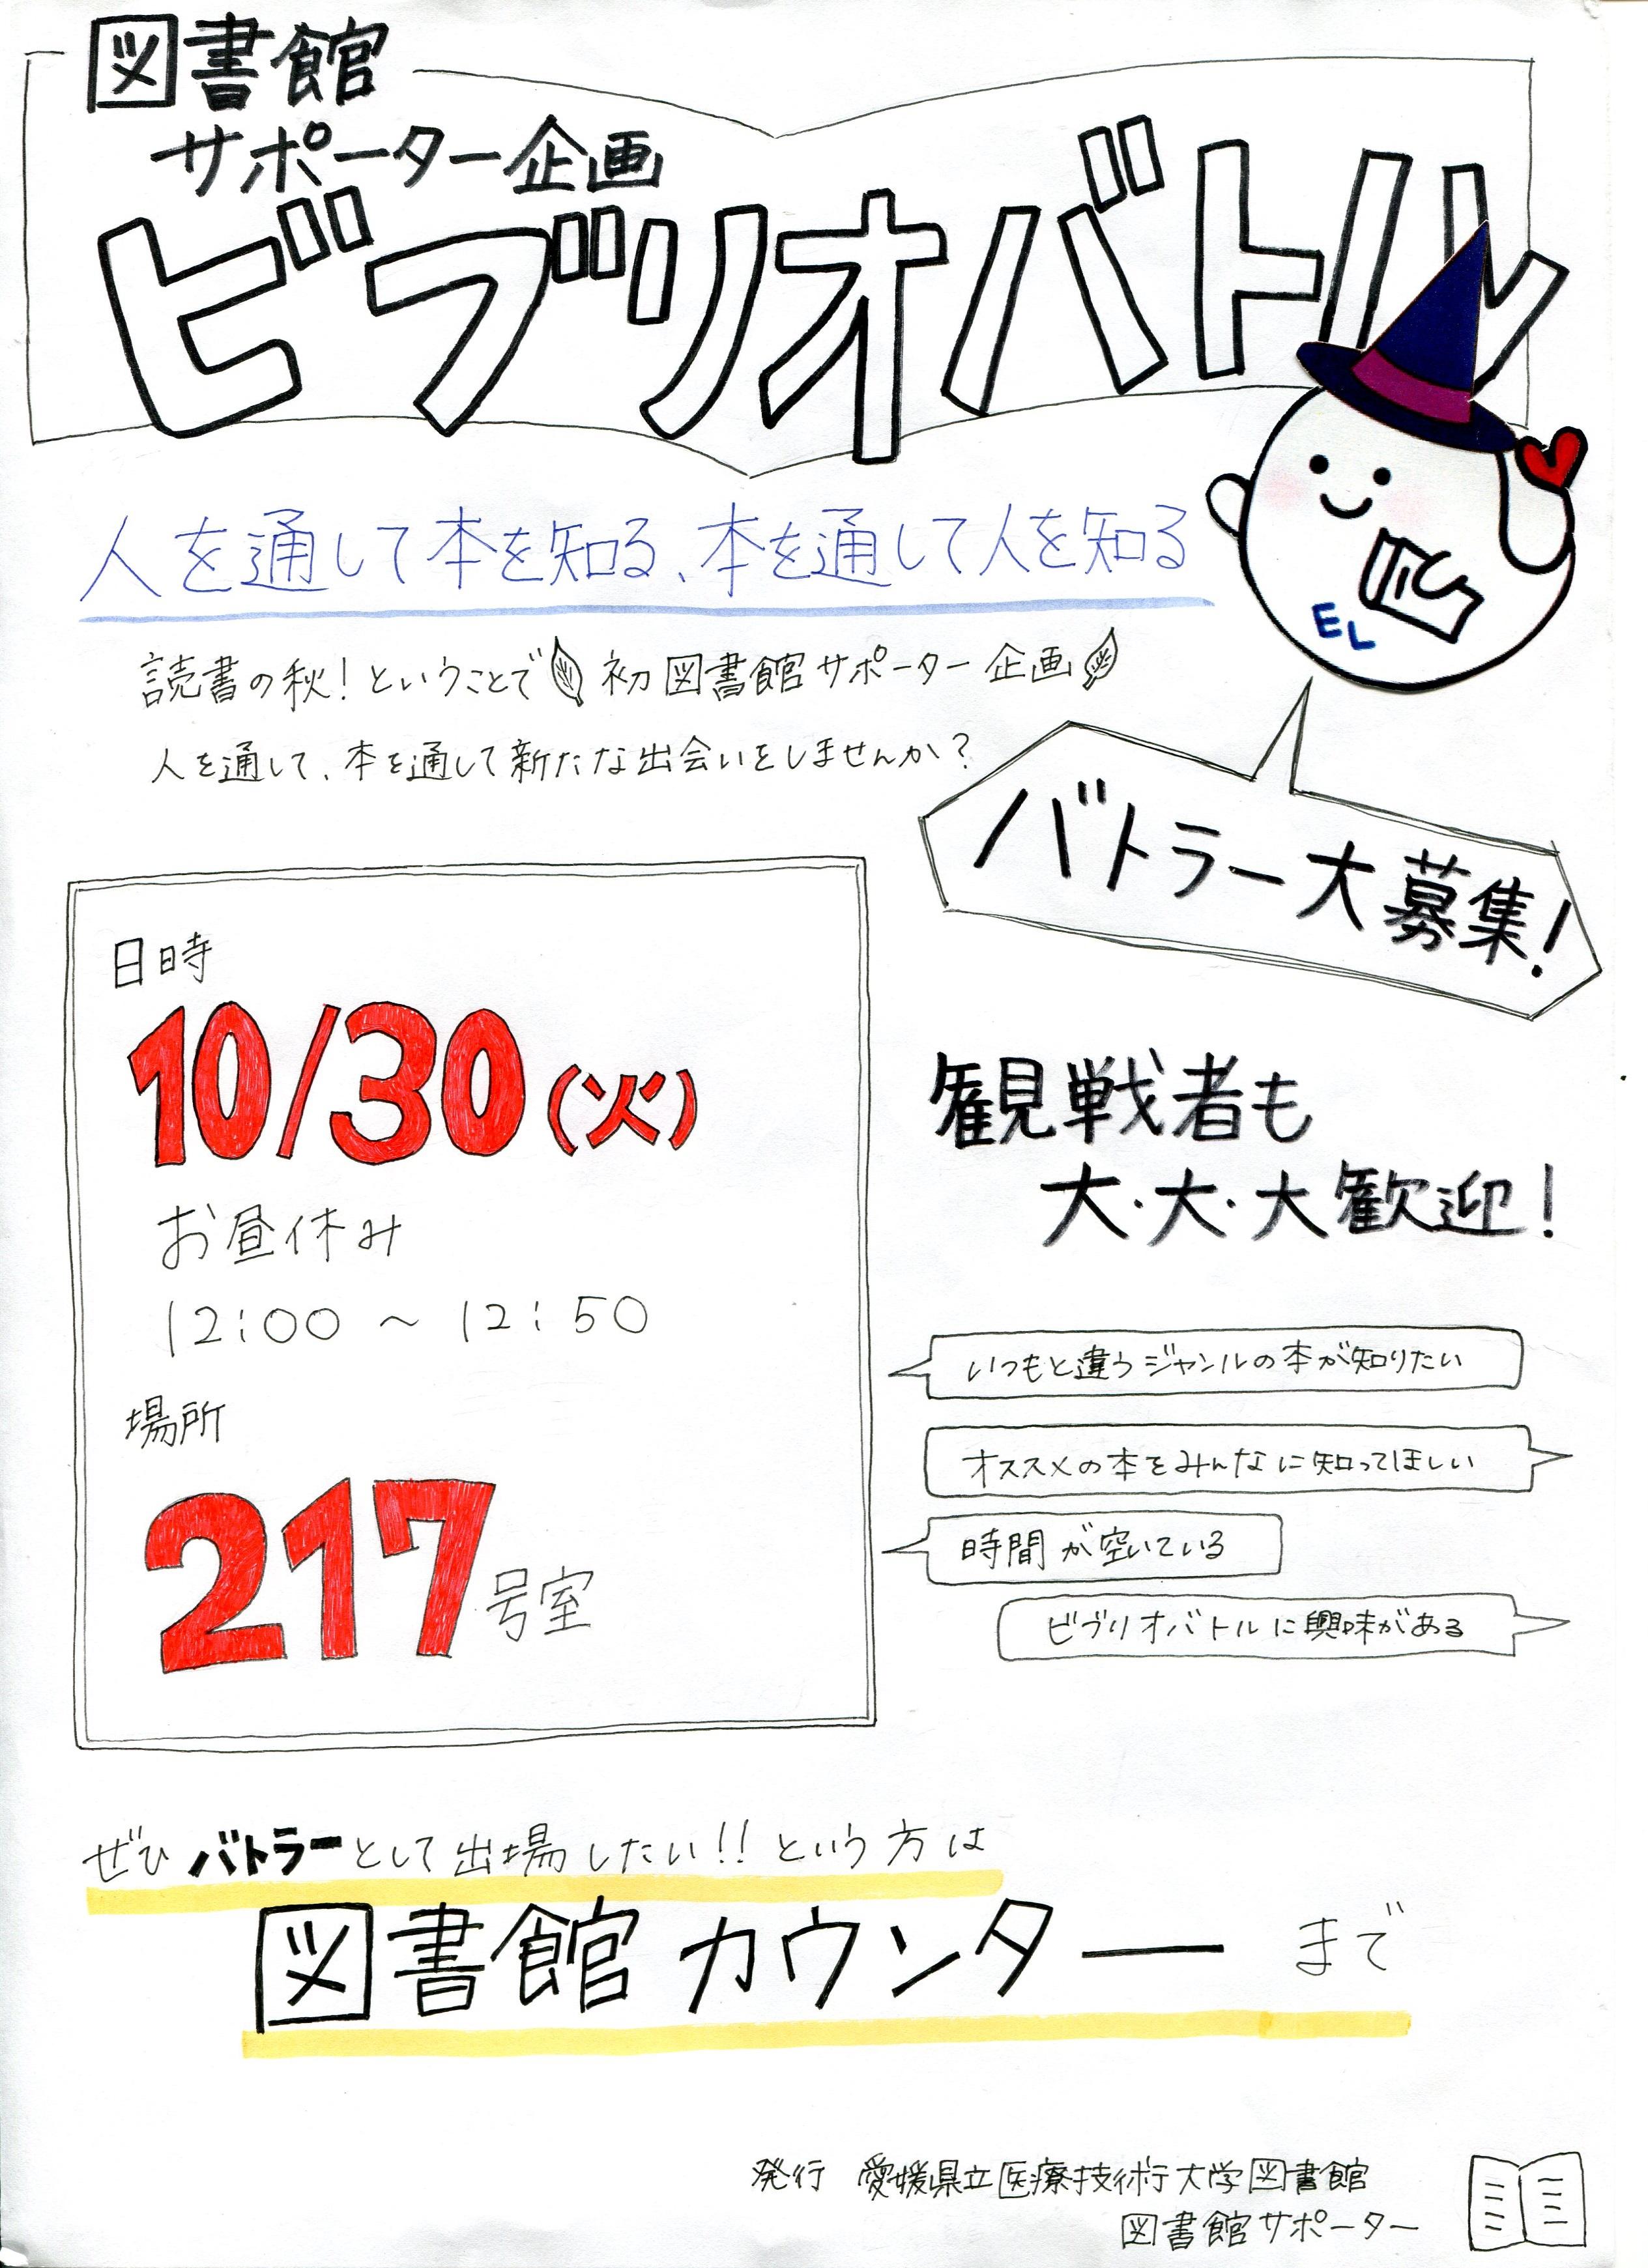 図書館
サポーター企画
ビブリオバトル
人を通して本を知る、本を通して人を知る
EL
読書の秋！ということで 初図書館サポーター企画
人を通して、本を通して新たな出会いをしませんか？
バトラー大募集！
日時
10/30(火)
お昼休み
12:00～12:50
場所
217号室
観戦者も
大・大・大歓迎！
いつもと違うジャンルの本が知りたい
オススメの本をみんなに知ってほしい
時間が空いている
ビブリオバトルに興味がある
ぜひバトラーとして出場したい!!という方は
図書館カウンターまで
発行 愛媛県立医療技術大学図書館
図書館サポーター